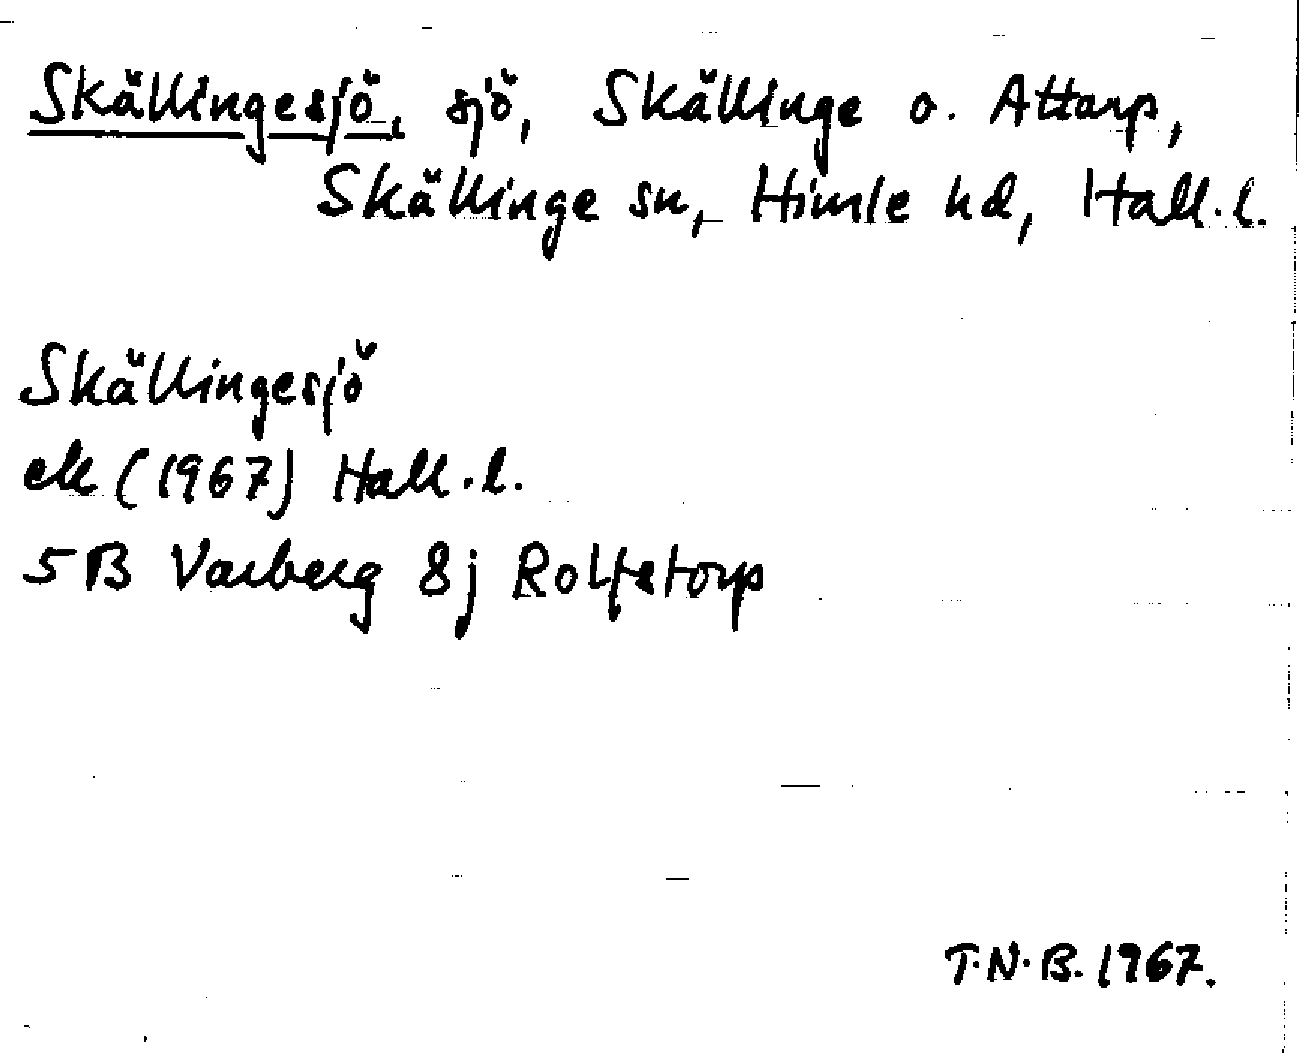 Skällingesjö, sjö, Skällinge o. Attarp,
Skällinge sn, Himle hd, Hall. l.
Skällingesjö
ek (1967) Hall. l.
5B Varberg 8j Rolfstorp
T.N.B. 1967.